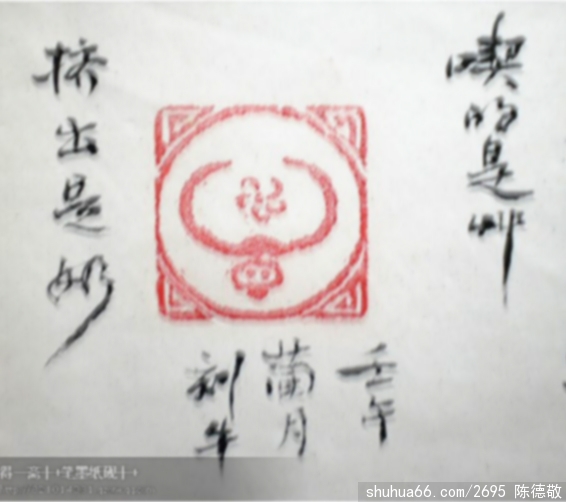 喫的是艸
挤出是奶
壬午
蘭月
刻牛
shuhua66.com/2695 陈德敬